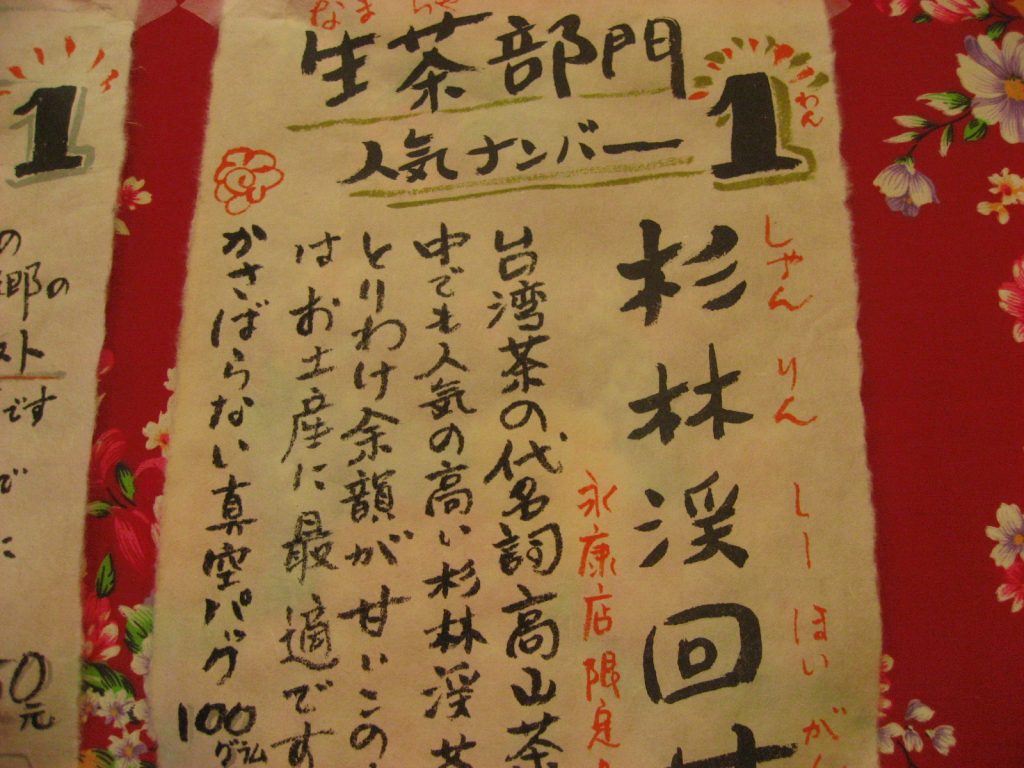 なま ちゃ
生茶部門
人気ナンバー1
わん
しゃん りん しー ほい がん
杉林渓回甘
永康店限定
台湾茶の代名詞高山茶
中でも人気の高い杉林渓茶
とりわけ余韻が甘いこの
はお土産に最適です
かさばらない真空パック
100グラム
1
の
郷の
スト
です
で
に
50元